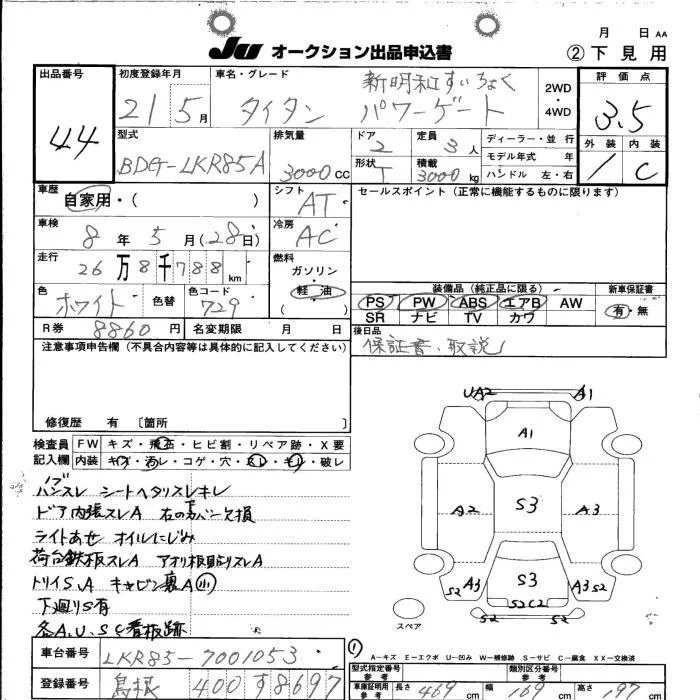 月 日 AA
JU オークション出品申込書 ② 下見用
出品番号 44
初度登録年月 21 5月
車名・グレード タイタン
新明和すいちょく
パワーゲート
2WD・4WD
評価点 3.5
外装 内装 C
型式 BDG-LKR85A
排気量 3000cc
ドア 2
形状 T
定員 3人
積載 3000kg
ディーラー・並行
モデル年式 年
ハンドル 左・右
車歴 自家用・( )
シフト AT
セールスポイント (正常に機能するものに限ります)
車検 8年5月(28日)
冷房 AC
走行 26万8千788km
燃料 ガソリン・軽油 ( )
色 ホワイト 色替 色コード 729
装備品 (純正品に限る) 新車保証書
PS PW ABS エアB AW 有・無
SR ナビ TV カワ
R券 8860円 名変期限 月 日
後日品 保証書、取説
注意事項申告欄 (不具合内容等は具体的に記入してください)
修復歴 有 〔箇所 〕
検査員記入欄 FW キズ・飛石・ヒビ割・リペア跡・X要
内装 キズ・汚レ・コゲ・穴・スレ・キレ・破レ
ハンスレ シートヘタリスレキレ
ドア内張スレA 右のカバー欠損
ライトあせ オイルにじみ
荷台鉄板スレA アオリ板曲りスレA
トリイS、A キャビン裏A小
下廻りS有
各A、U、SC看板跡
UA2 A1
A1
A2 S3 A3
S3
S2 A3 A3 S2
S2C2
S2 S2
スペア
①
A-キズ E-エクボ U-凹み W-補修跡 S-サビ C-腐食 XX-交換済
車台番号 LKR85-7001053
型式指定番号 参考 類別区分番号 参考
登録番号 島根 400 す 8697
車庫証明用 参考 長さ 469cm 幅 169cm 高さ 197cm